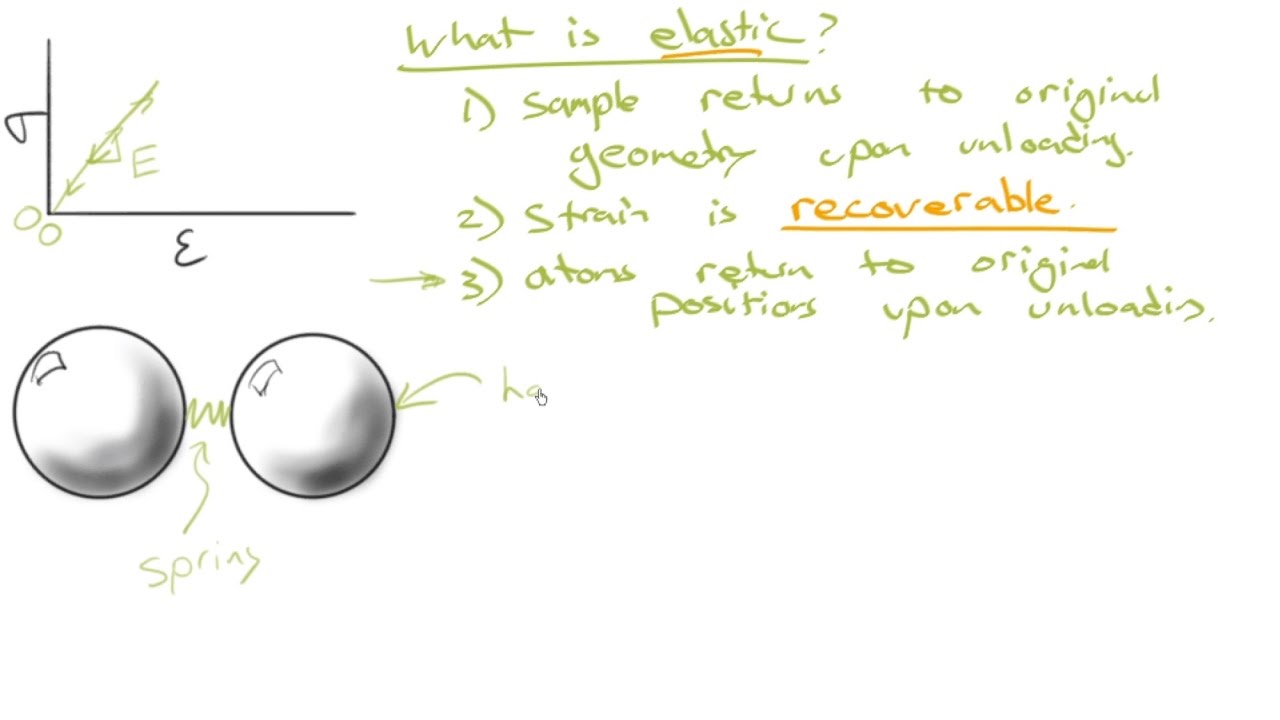 What is elastic?
1) Sample returns to original
geometry upon unloading.
2) Strain is recoverable.
3) atoms return to original
positions upon unloading.
σ
E
O
O
ε
ha
spring